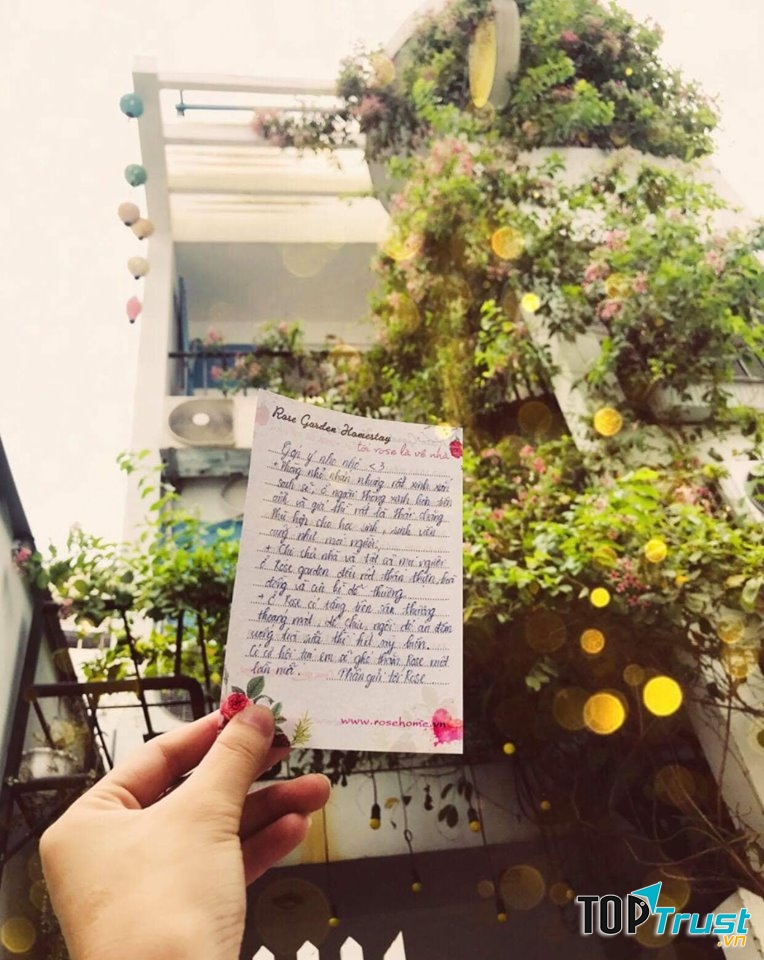 Rose Garden Homestay
tới rose là về nhà
Gợi ý nho nhỏ <3
+ Phòng nhỏ nhắn nhưng rất xinh xắn
sạch sẽ, ở ngoài thông xanh
và giá thì rất là phải chăng
phù hợp cho học sinh, sinh viên
cũng như mọi người.
+ Chị chủ nhà và tất cả mọi người
ở Rose garden đều rất thân thiện, hoạt
động và cực kì dễ thương
+ Ở Rose có tầng trên sân thượng
thoáng mát, dễ chịu, ngồi để ăn đêm
uống trà sữa thì hết sảy luôn.
Có cơ hội tụi em sẽ ghé thăm Rose một
lần nữa. Thân gửi tới Rose
www.rosehome.vn
TOPTrust
.vn